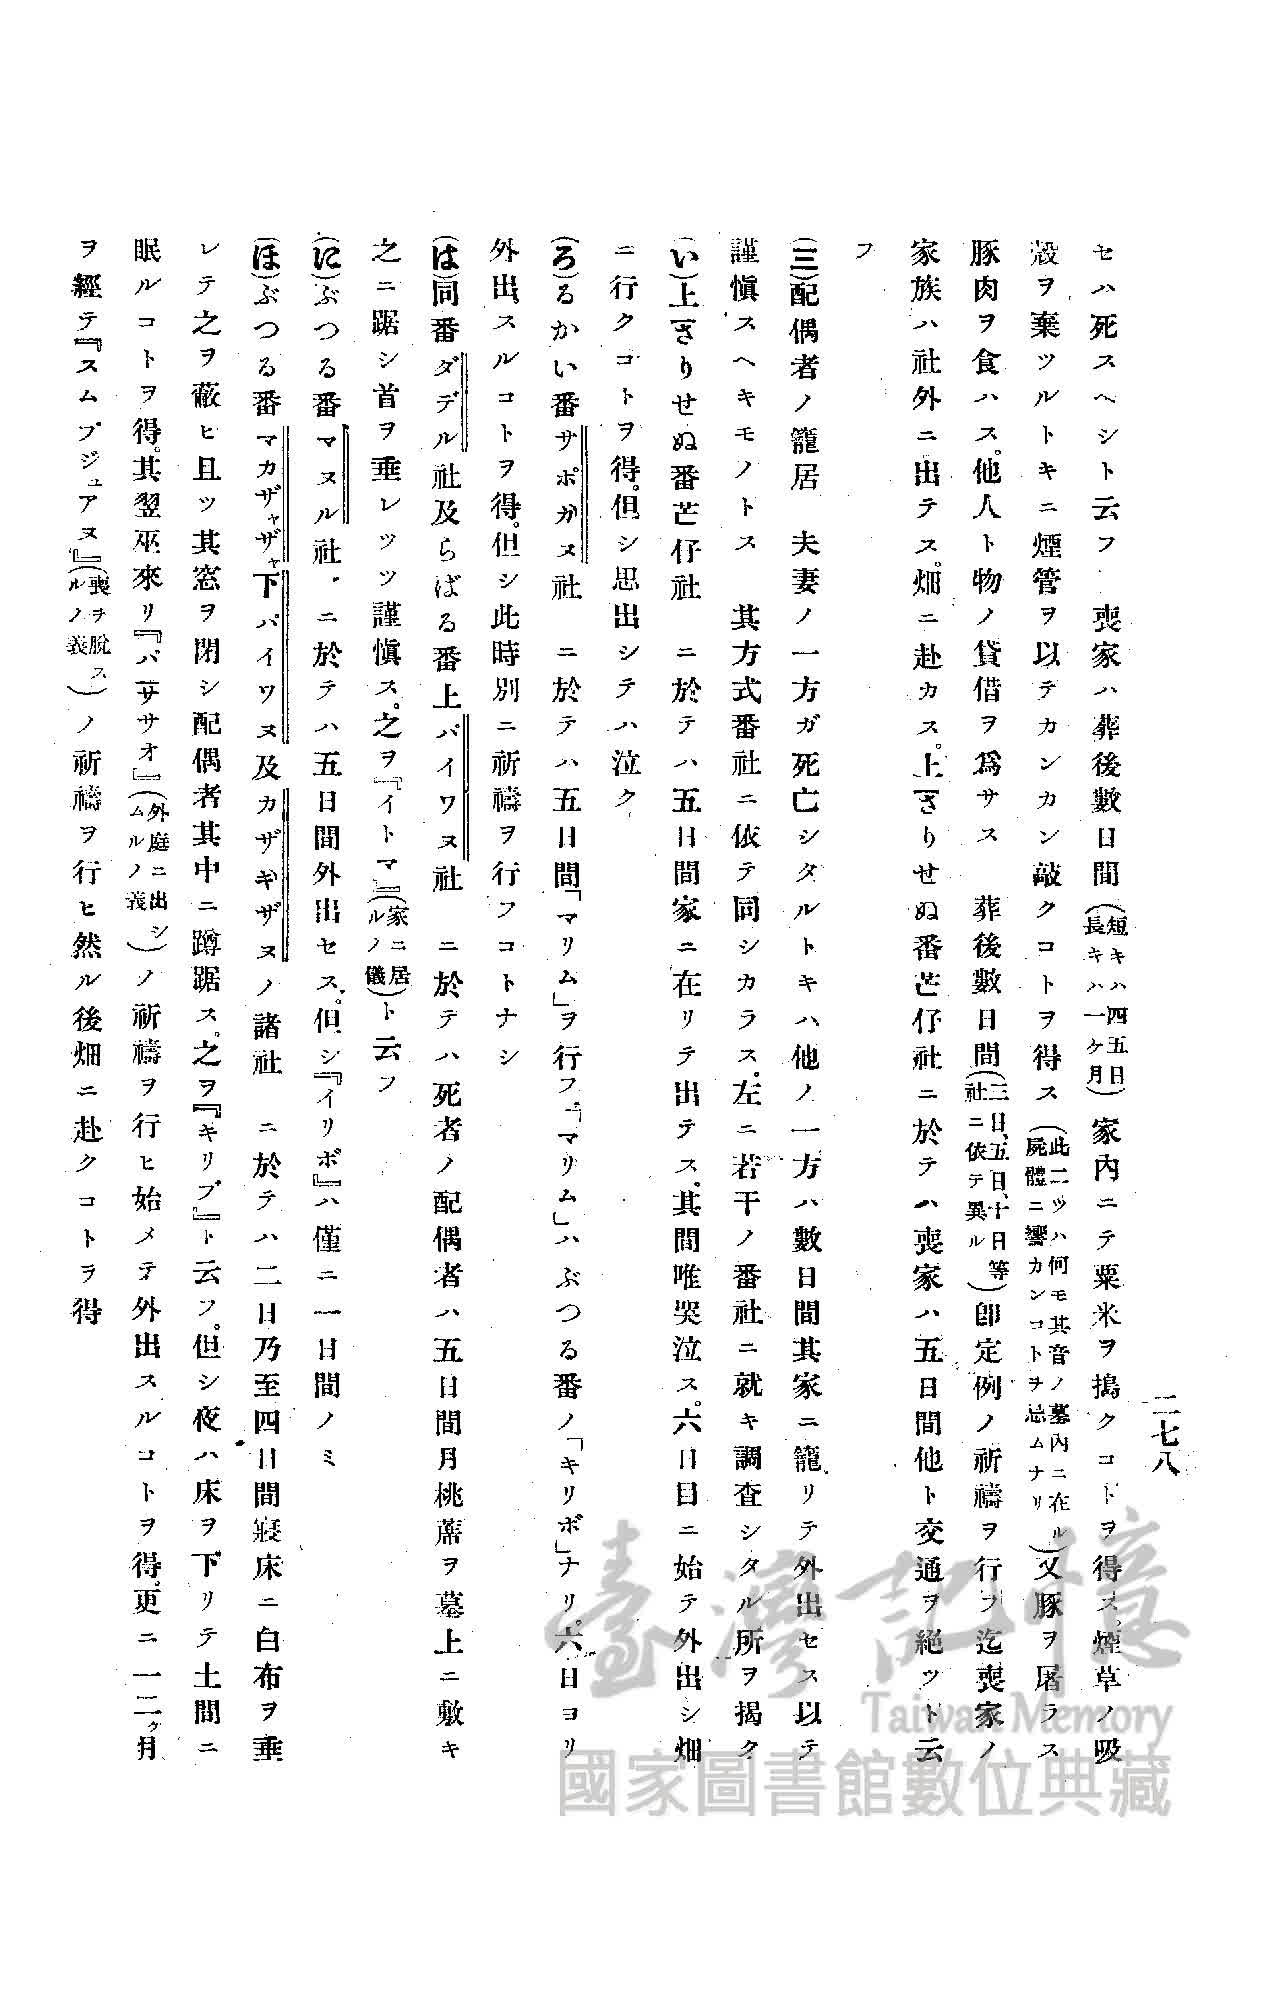 二七八
セハ死スヘシト云フ　喪家ハ葬後數日間(短キハ四五日長キハ一ケ月)家内ニテ粟米ヲ搗クコトヲ得ス。煙草ノ吸
殼ヲ棄ツルトキニ煙管ヲ以テカンカン敲クコトヲ得ス(此二ツハ何モ其音ノ墓内ニ在ル屍體ニ響カンコトヲ忌ムナリ)又豚ヲ屠ラス
豚肉ヲ食ハス。他人ト物ノ貸借ヲ爲サス　葬後數日間(三日、五日、十日等社ニ依テ異ル)卽定例ノ祈禱ヲ行フ迄喪家ノ
家族ハ社外ニ出テス。畑ニ赴カス。上ざりせぬ番芒仔社ニ於テハ喪家ハ五日間他ト交通ヲ絶ツト云
フ
(三)配偶者ノ籠居　夫妻ノ一方ガ死亡シタルトキハ他ノ一方ハ數日間其家ニ籠リテ外出セス以テ
謹愼スヘキモノトス　其方式番社ニ依テ同シカラス。左ニ若干ノ番社ニ就キ調査シタル所ヲ揭ク
(い)上ざりせぬ番芒仔社　ニ於テハ五日間家ニ在リテ出テス。其間唯哭泣ス。六日目ニ始テ外出シ畑
ニ行クコトヲ得。但シ思出シテハ泣ク
(ろ)るかい番サポガヌ社　ニ於テハ五日間「マリム」ヲ行フ。「マリム」ハぶつる番ノ「キリボ」ナリ。六日ヨリ
外出スルコトヲ得。但シ此時別ニ祈禱ヲ行フコトナシ
(は)同番ダデル社及らばる番上パイワヌ社　ニ於テハ死者ノ配偶者ハ五日間月桃蓆ヲ墓上ニ敷キ
之ニ踞シ首ヲ垂レツツ謹愼ス。之ヲ『イトマ』(家ニ居ルノ儀)ト云フ
(に)ぶつる番マヌル社　ニ於テハ五日間外出セス。但シ『イリボ』ハ僅ニ一日間ノミ
(ほ)ぶつる番マカザャザャ下パイワヌ及カザギザヌノ諸社　ニ於テハ二日乃至四日間寢床ニ白布ヲ垂
レテ之ヲ蔽ヒ且ツ其窓ヲ閉シ配偶者其中ニ蹲踞ス。之ヲ『キリブ』ト云フ。但シ夜ハ床ヲ下リテ土間ニ
眠ルコトヲ得。其翌巫來リ『パササオ』(外庭ニ出シムルノ義)ノ祈禱ヲ行ヒ始メテ外出スルコトヲ得。更ニ一二ケ月
ヲ經テ『スムブジュアヌ』(喪ヲ脫スルノ義)ノ祈禱ヲ行ヒ然ル後畑ニ赴クコトヲ得
臺灣記憶
Taiwan Memory
國家圖書館數位典藏